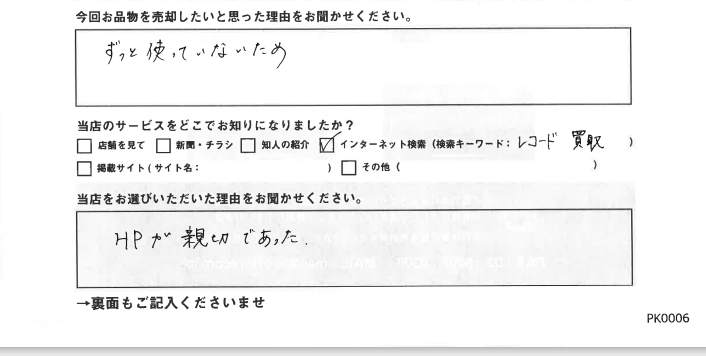 今回お品物を売却したいと思った理由をお聞かせください。
ずっと使っていないため
当店のサービスをどこでお知りになりましたか？
□ 店舗を見て □ 新聞・チラシ □ 知人の紹介 ☑ インターネット検索（検索キーワード：レコード 買取 ）
□ 掲載サイト（サイト名： ） □ その他（ ）
当店をお選びいただいた理由をお聞かせください。
HPが親切であった.
→裏面もご記入くださいませ
PK0006